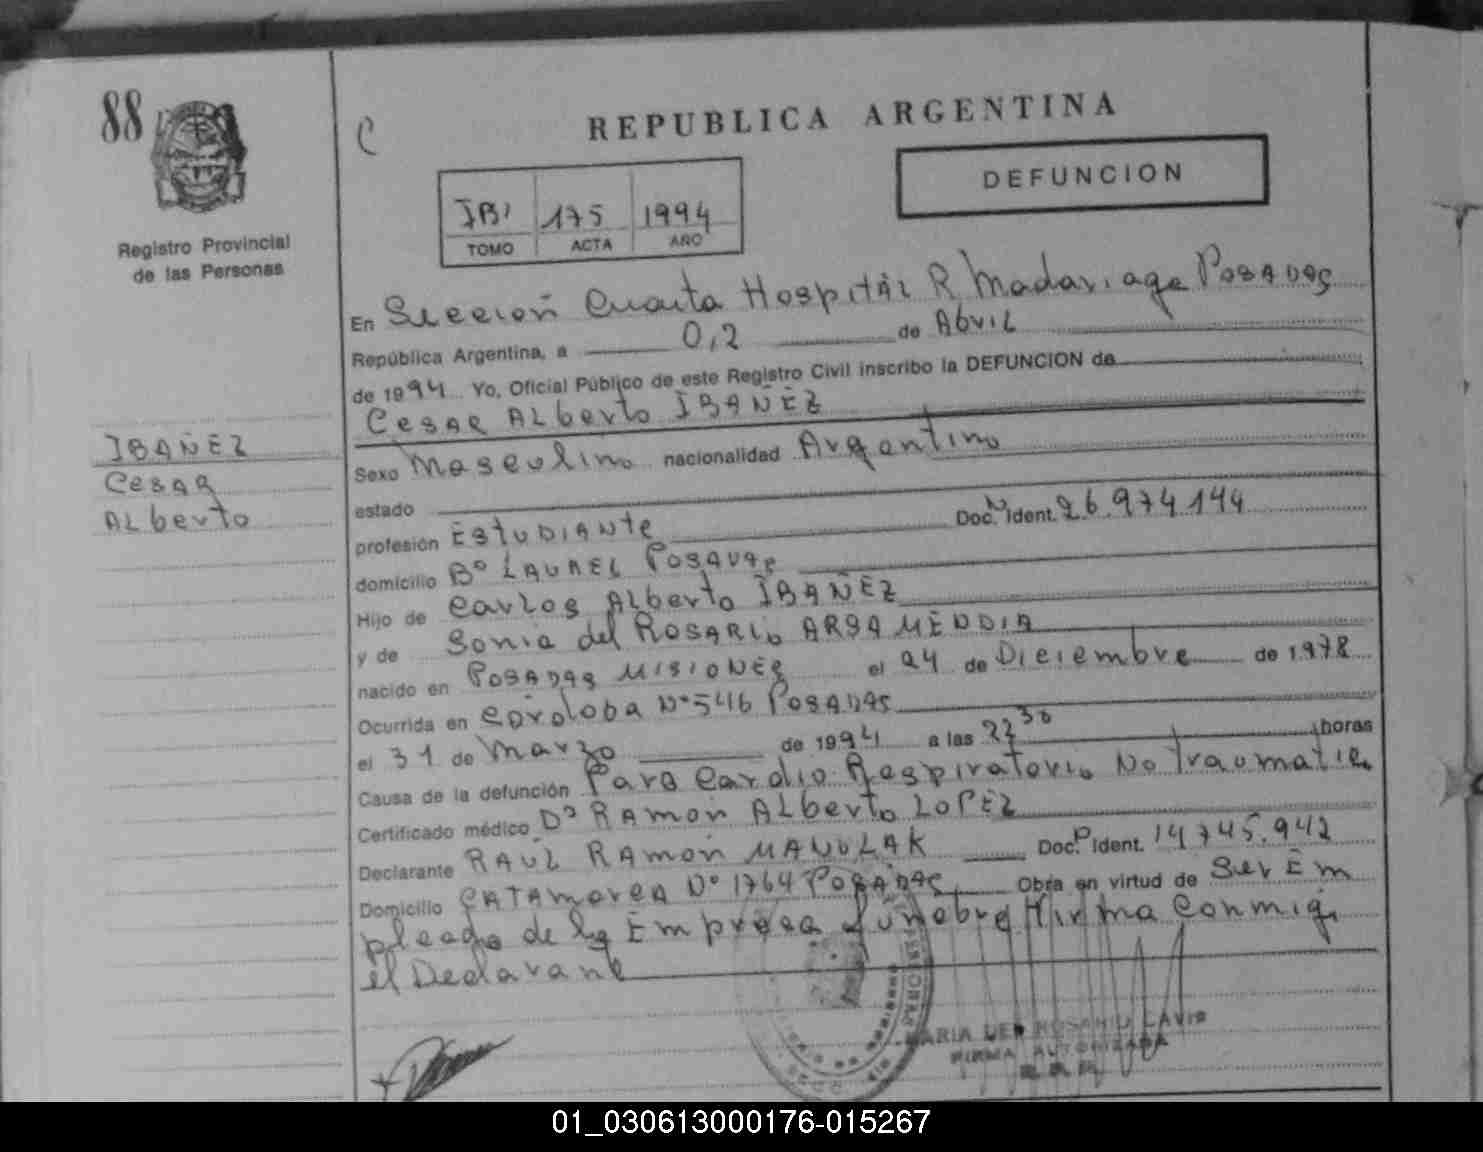 88
REPUBLICA ARGENTINA
DEFUNCION
IBI 175 1994
TOMO ACTA AÑO
Registro Provincial
de las Personas
En Sección Cuarta Hospital R Madariaga Posadas
República Argentina, a 02 de Abril
de 1994 Yo, Oficial Público de este Registro Civil inscribo la DEFUNCION de
Cesar Alberto IBAÑEZ
IBAÑEZ
Cesar
Alberto
Sexo Masculino nacionalidad Argentino
estado
profesión Estudiante Doc. Ident. 26.974.144
domicilio Bº Laurel Posadas
Hijo de Carlos Alberto IBAÑEZ
y de Sonia del Rosario ARSAMENDIA
nacido en Posadas Misiones el 24 de Diciembre de 1978
Ocurrida en Cordoba Nº 546 Posadas
el 31 de Marzo de 1994 a las 22 30 horas
Causa de la defunción Paro Cardio Respiratorio No Traumatico
Certificado médico Dr Ramon Alberto LOPEZ
Declarante RAUL RAMON MANULAK Doc. Ident. 14.745.942
Domicilio CATAMARCA Nº 1764 Posadas Obra en virtud de Ser Em
pleado de la Empresa Funebre Firma Conmigo
el Declarante
MARIA DEL ROSARIO
FIRMA AUTORIZADA
01_030613000176-015267